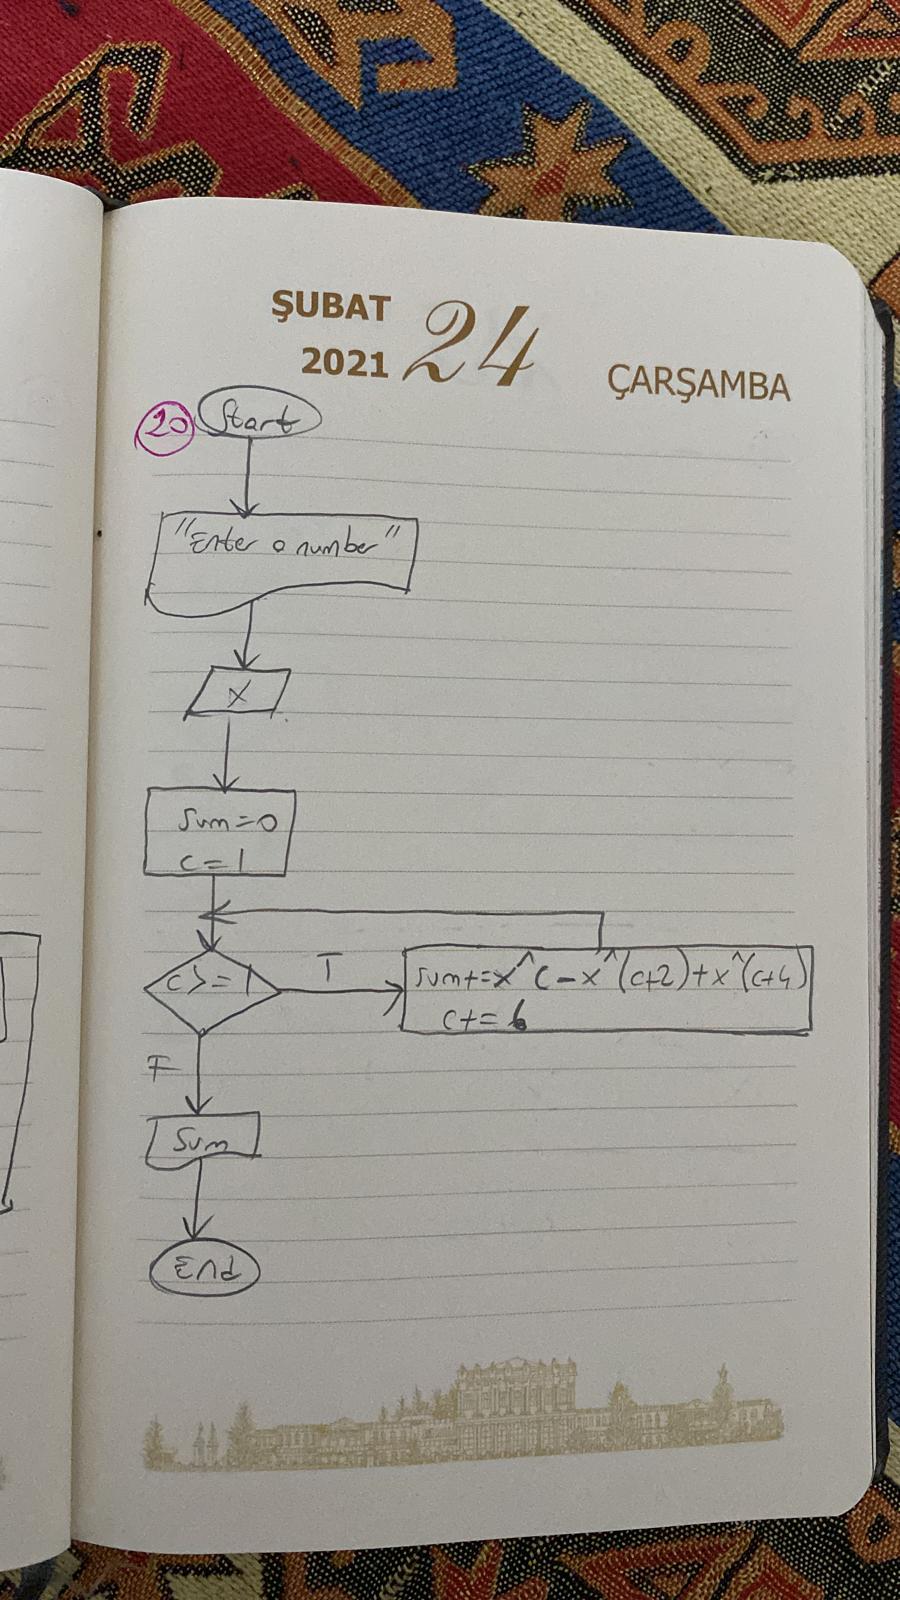 ŞUBAT
2021
24
ÇARŞAMBA
20
Start
"Enter a number"
x
sum=0
c=1
c>=1
T
sum+=x^c-x^(c+2)+x^(c+4)
c+=6
F
sum
End